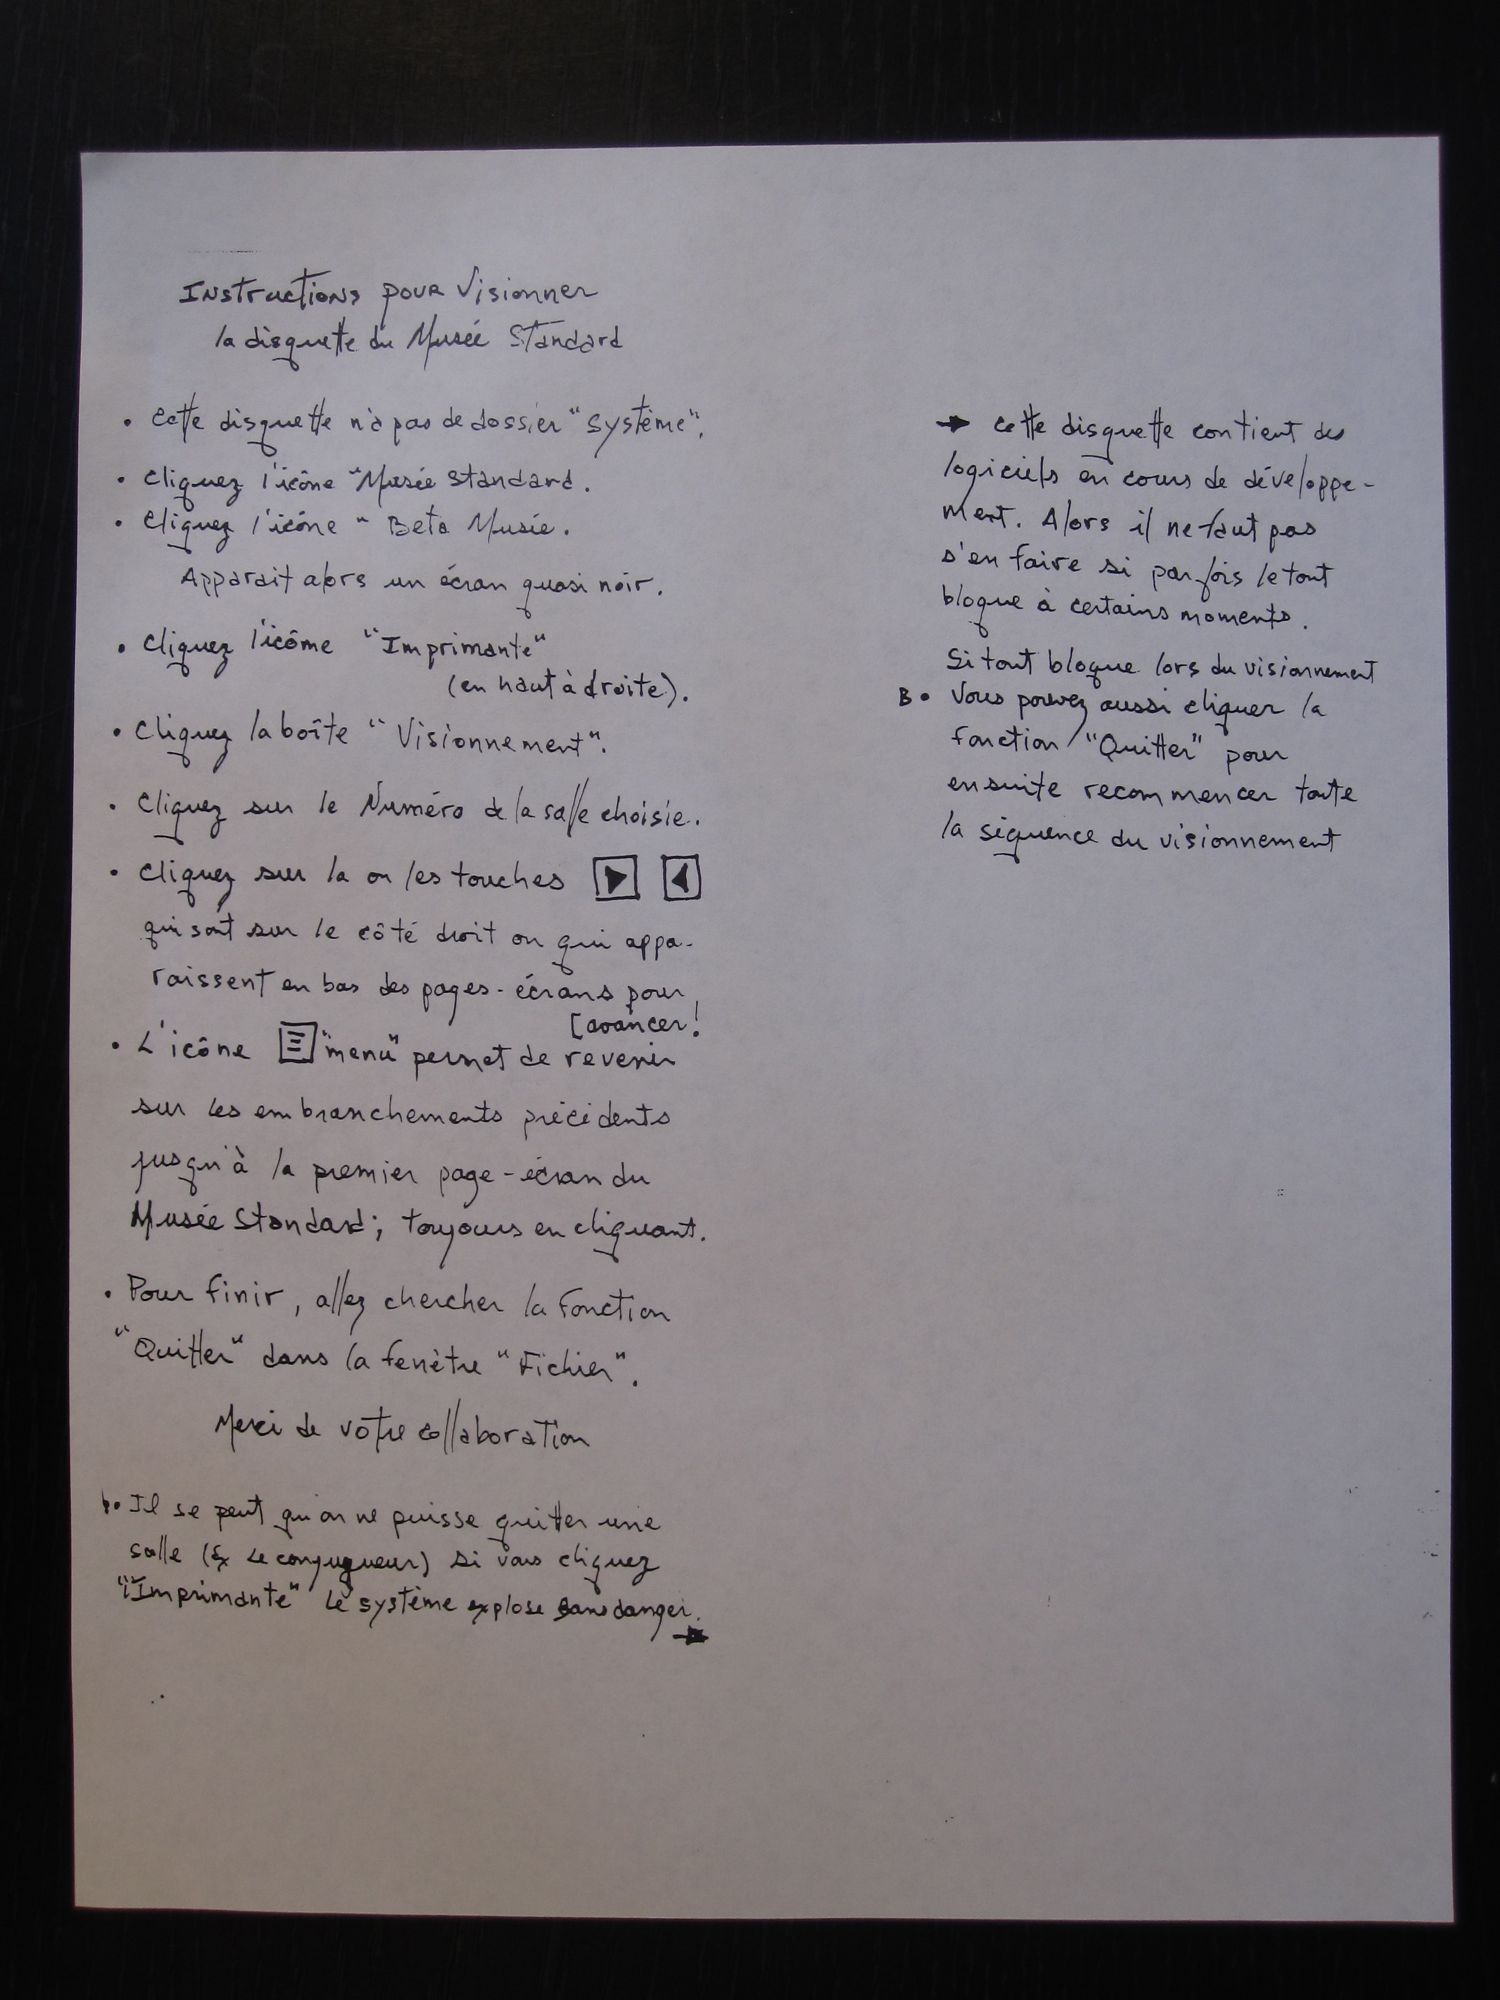 Instructions pour Visionner
la disquette du Musée Standard
• Cette disquette n'a pas de dossier "Système".
• Cliquez l'icône "Musée Standard.
• Cliquez l'icône " Beta Musée.
Apparait alors un écran quasi noir.
• Cliquez l'icôme "Imprimante"
(en haut à droite).
• Cliquez la boîte "Visionnement".
• Cliquez sur le Numéro de la salle choisie.
• Cliquez sur la ou les touches ▶ ◀
qui sont sur le côté droit ou qui appa-
raissent en bas des pages-écrans pour
[avancer!
• L'icône "menu" permet de revenir
sur les embranchements précédents
jusqu'à la premier page-écran du
Musée Standard; toujours en cliquant.
• Pour finir, allez chercher la fonction
"Quitter" dans la fenêtre "Fichier".
Merci de votre collaboration
b• Il se peut qu'on ne puisse quitter une
salle (Ex Le conjugueur) si vous cliquez
"l'Imprimante" le système explose sans danger.
→
→ Cette disquette contient des
logiciels en cours de développe-
ment. Alors il ne faut pas
s'en faire si parfois le tout
bloque à certains moments.
Si tout bloque lors du visionnement
B• Vous pouvez aussi cliquer la
fonction "Quitter" pour
ensuite recommencer toute
la séquence du visionnement